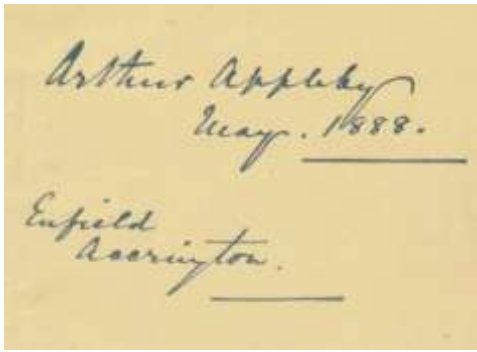 Arthur Appleby
May. 1888.
Enfield
Accrington.